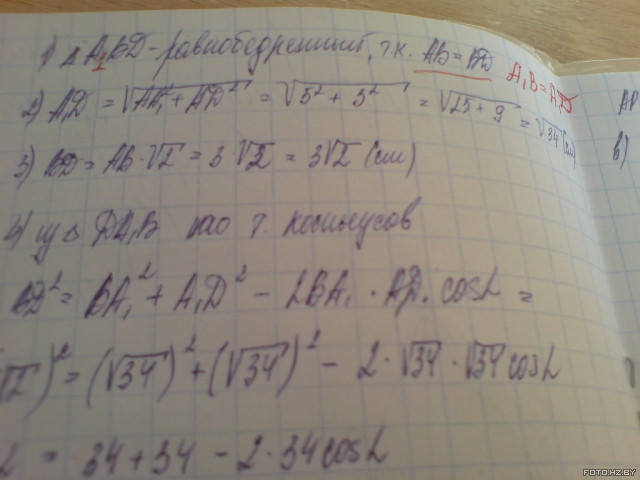 1) Δ A₁BD - равнобедренный, т.к. AB = AD A₁B = A₁D
2) A₁D = √AA₁ + AD² = √5² + 3² = √25 + 9 = √34 (см)
3) BD = AB · √2 = 3 · √2 = 3√2 (см)
4) из Δ DA₁B по т. косинусов
BD² = BA₁² + A₁D² - 2BA₁ · A₁D · cosL =
√2)² = (√34)² + (√34)² - 2 · √34 · √34 cosL
= 34 + 34 - 2 · 34 cosL
AP
в)
FOTO.HZ.BY